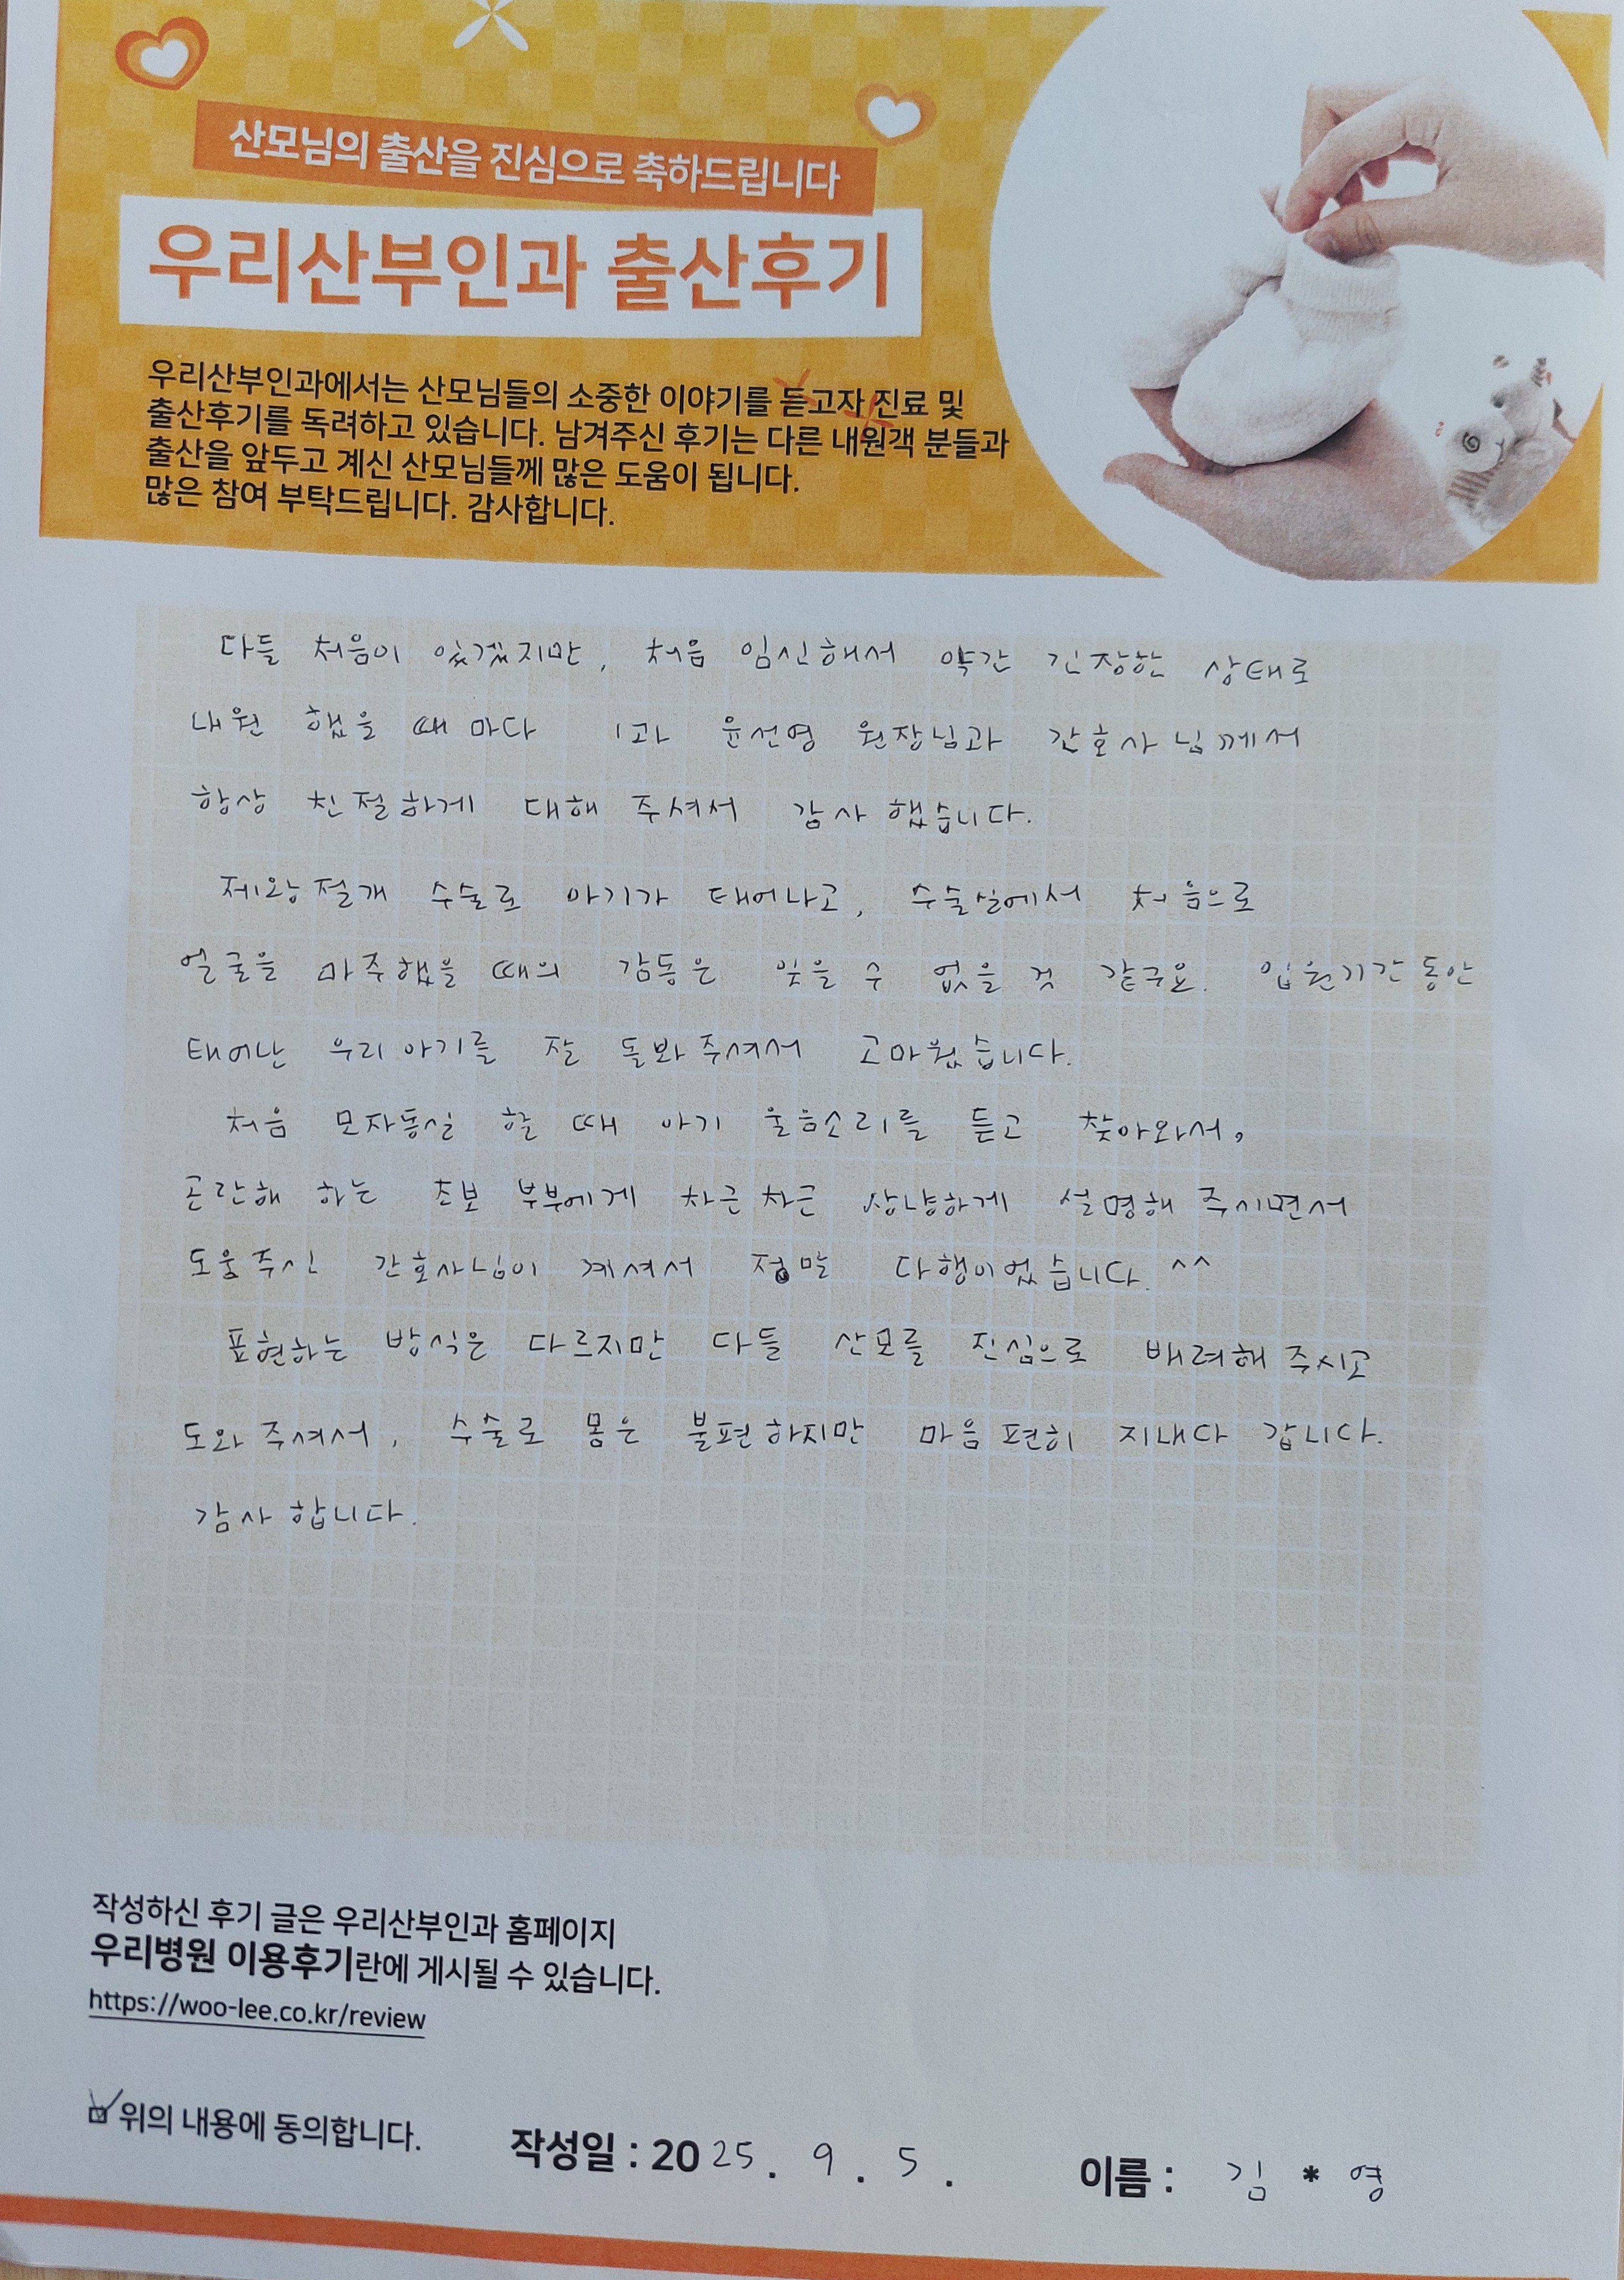 산모님의 출산을 진심으로 축하드립니다
우리산부인과 출산후기
우리산부인과에서는 산모님들의 소중한 이야기를 듣고자 진료 및
출산후기를 독려하고 있습니다. 남겨주신 후기는 다른 내원객 분들과
출산을 앞두고 계신 산모님들께 많은 도움이 됩니다.
많은 참여 부탁드립니다. 감사합니다.
다들 처음이 있겠지만, 처음 임신해서 약간 긴장한 상태로
내원 했을 때 마다 1과 윤선영 원장님과 간호사님께서
항상 친절하게 대해 주셔서 감사했습니다.
제왕절개 수술로 아기가 태어나고, 수술실에서 처음으로
얼굴을 마주했을 때의 감동은 잊을 수 없을 것 같구요. 입원기간동안
태어난 우리 아기를 잘 돌봐주셔서 고마웠습니다.
처음 모자동실 할 때 아기 울음소리를 듣고 찾아와서,
곤란해 하는 초보 부부에게 차근차근 상냥하게 설명해 주시면서
도움주신 간호사님이 계셔서 정말 다행이었습니다. ^^
표현하는 방식은 다르지만 다들 산모를 진심으로 배려해 주시고
도와주셔서, 수술로 몸은 불편하지만 마음 편히 지내다 갑니다.
감사합니다.
작성하신 후기 글은 우리산부인과 홈페이지
우리병원 이용후기란에 게시될 수 있습니다.
https://woo-lee.co.kr/review
위의 내용에 동의합니다. 작성일 : 2025. 9. 5. 이름 : 김 * 영